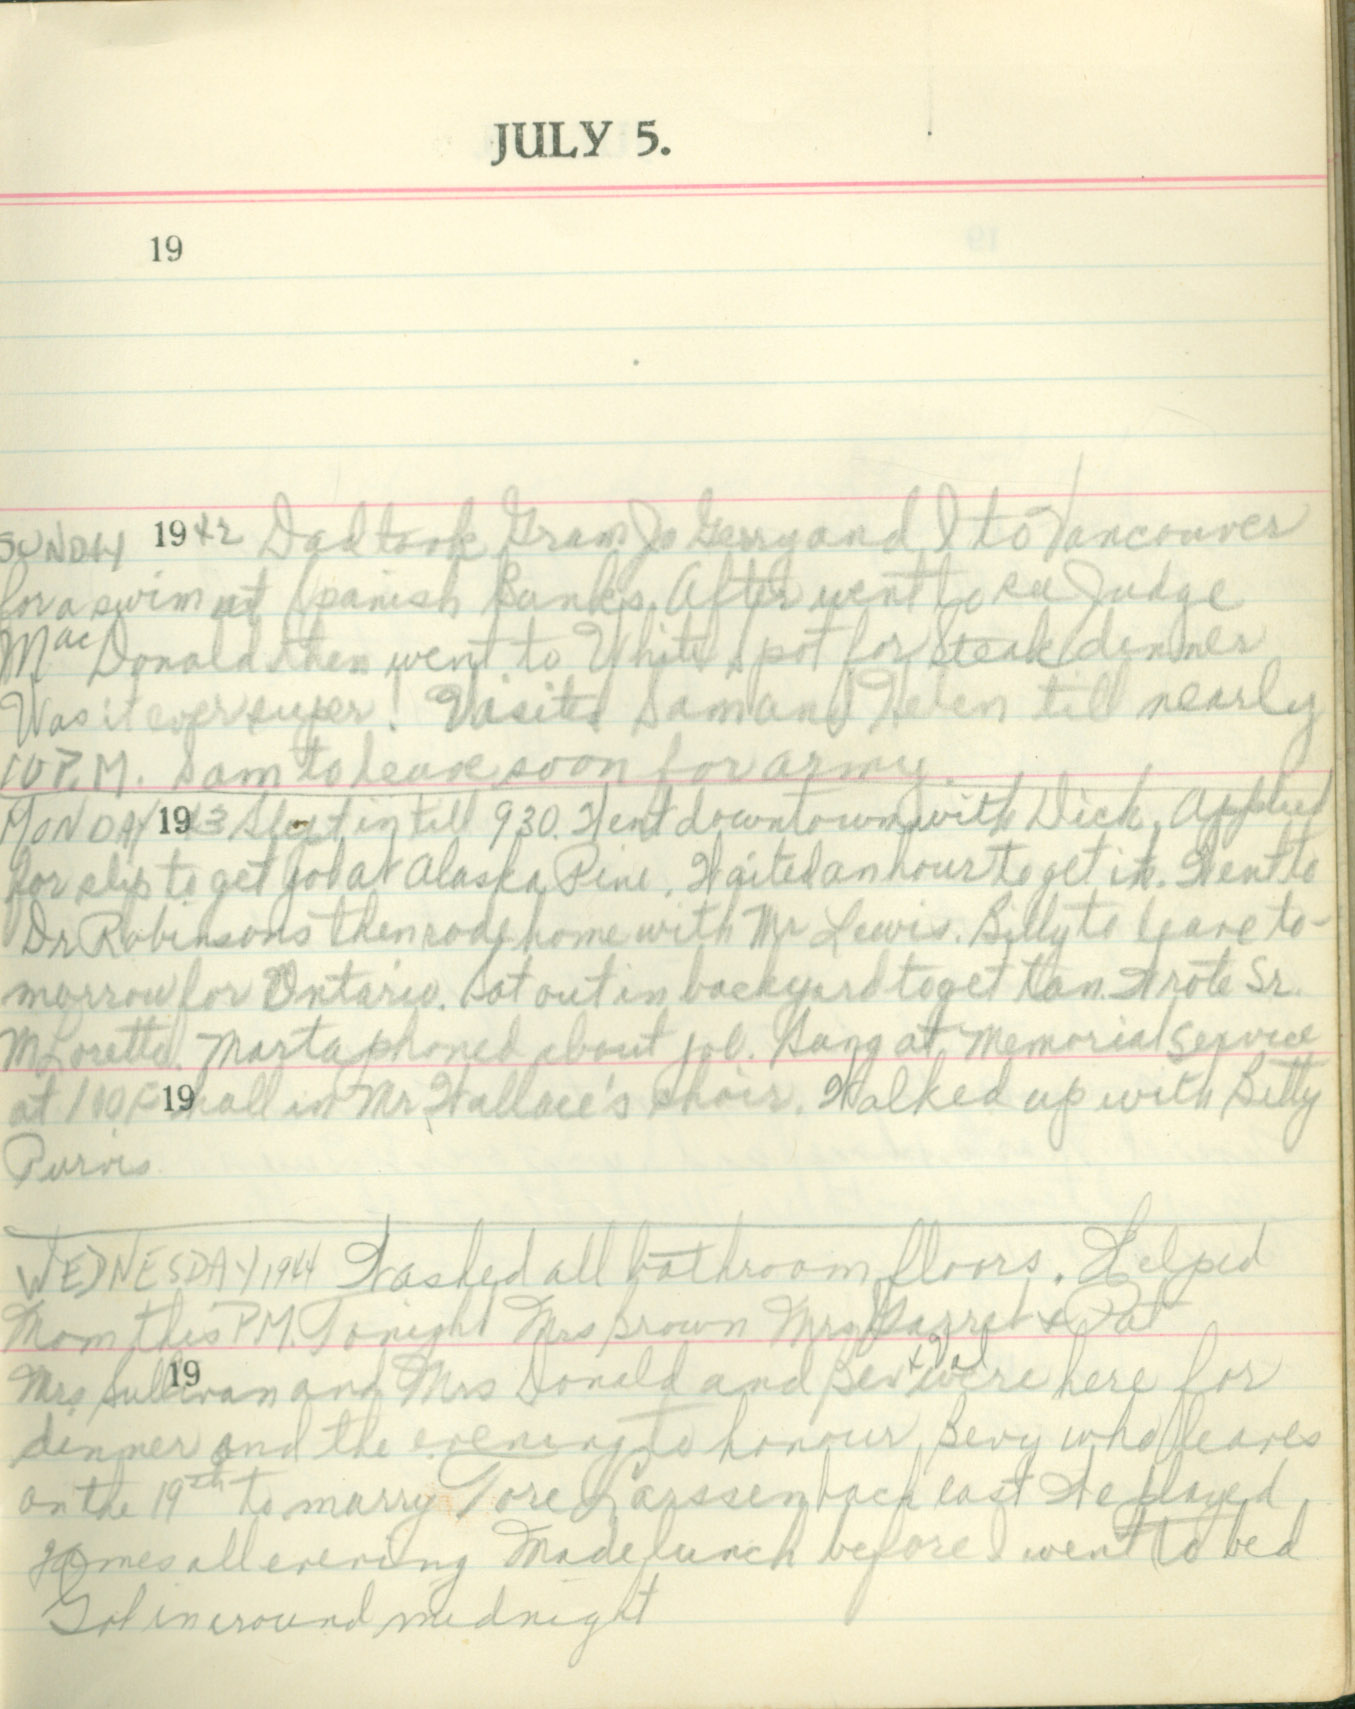 JULY 5.
19
SUNDAY 1942 Dad took Gram Jo Gerry and I to Vancouver
for a swim at Spanish Banks. After went to see Judge
MacDonald then went to White Spot for steak dinner
Was it ever super! Visited Sam and Helen till nearly
10 P.M. Sam to leave soon for army.
MONDAY 1943 Slept in till 930. Went downtown with Dick. Applied
for slip to get job at Alaska Pine. Waited an hour to get it. Went to
Dr Robinsons then rode home with Mr Lewis. Billy to leave to-
morrow for Ontario. Sat out in backyard to get tan. Wrote Sr.
M. Loretta. Marta phoned about job. Sang at Memorial Service
at 19 hall in Mr Wallace's choir. Walked up with Betty
Purvis
WEDNESDAY 1944 Washed all bathroom floors. Helped
Mom this PM. Tonight Mrs Brown Mrs Garret & Pat
19
Mrs Sullivan and Mrs Donald and Bev & Val were here for
dinner and the evening to honour Bevy who leaves
on the 19th to marry Tore Larssen back east We played
games all evening Made lunch before I went to bed
Got in around midnight